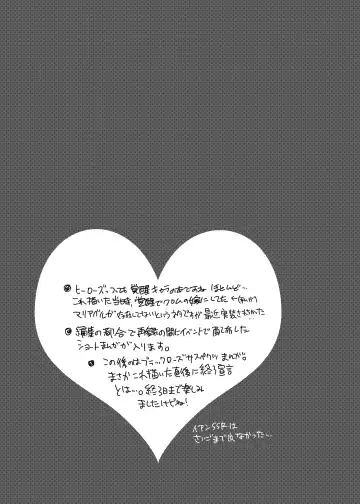 ヒーローズっつっても覚醒キャラのみですね ほとんど…
これ描いた当時、覚醒でクロムの嫁にしてた
マリアベルが存在してないという
最近実装されたかった
編集の都合で再録の間にイベントで出した
ショートまんがが入ります。
この後のはブラックローズサスペクツ まんが。
まさかこれ描いた直後に終了宣言
とは…。終る日まで楽しみ
ましたけどね!
イアンSSRは
さいごまで出なかった…